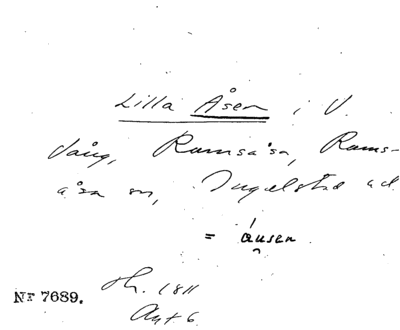 Lilla Åsen i V.
Vång, Ramsåsa, Rams-
åsa sn, Ingelstad hd.
= áusen
NF 7689.
Sk. 1811
Akt 6